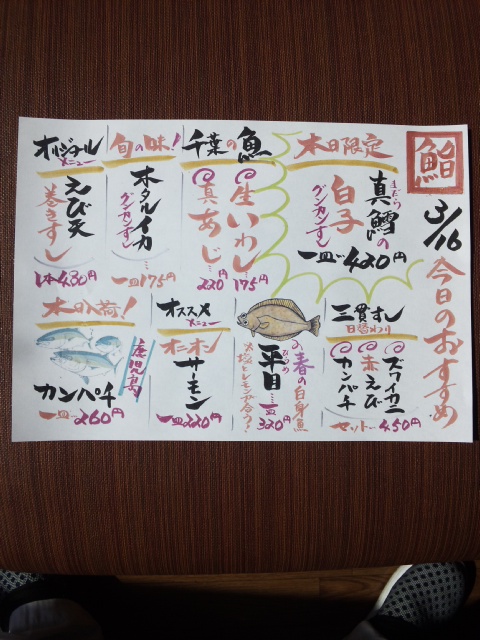 鮨
3/16
今日のおすすめ
本日限定
真鱈の
まだら
白子
グンカンずし
一皿…420円
千葉の魚
生いわし…
175円
真あじ…
220円
旬の味!
ホタルイカ
グンカンずし
一皿…175円
オリジナル
メニュー
えび天
巻きずし
1本430円
三貫ずし
日替わり
ズワイカニ
赤えび
カンパチ
セット…450円
春の白身魚
平目…
ひらめ
一皿
320円
オススメ
メニュー
オニオン
サーモン
一皿220円
本日入荷!
鹿児島
カンパチ
一皿…260円